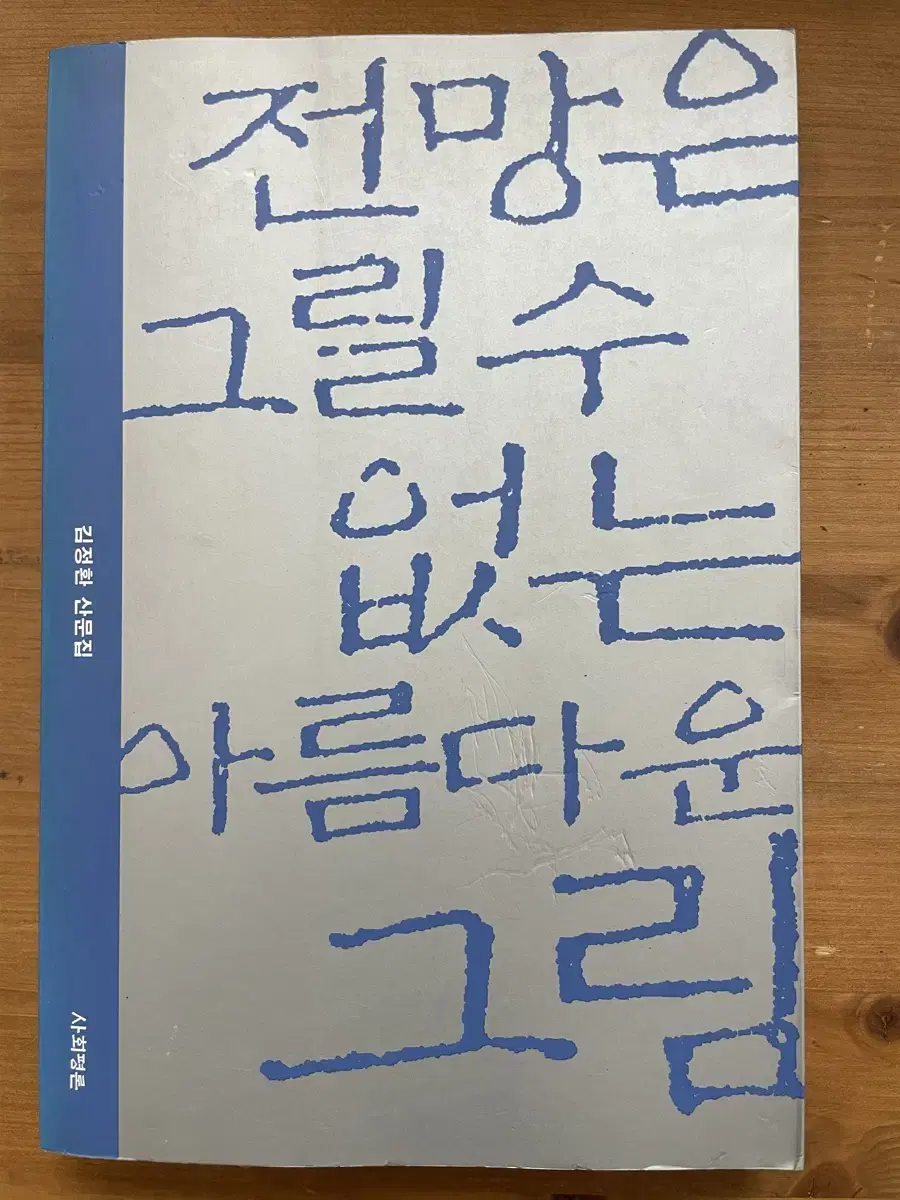 전망은
그릴 수
없는
아름다운
그림
김정환 산문집
사회평론